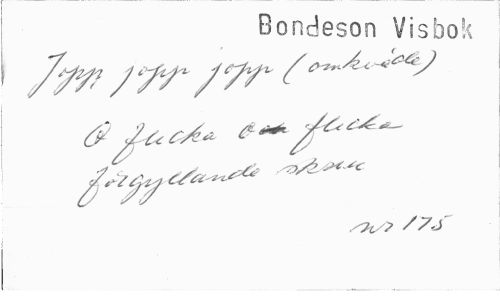 Bondeson Visbok
Jopp jopp jopp (omkväde)
O flicka o flicka
förgyllande skrin
nr 175